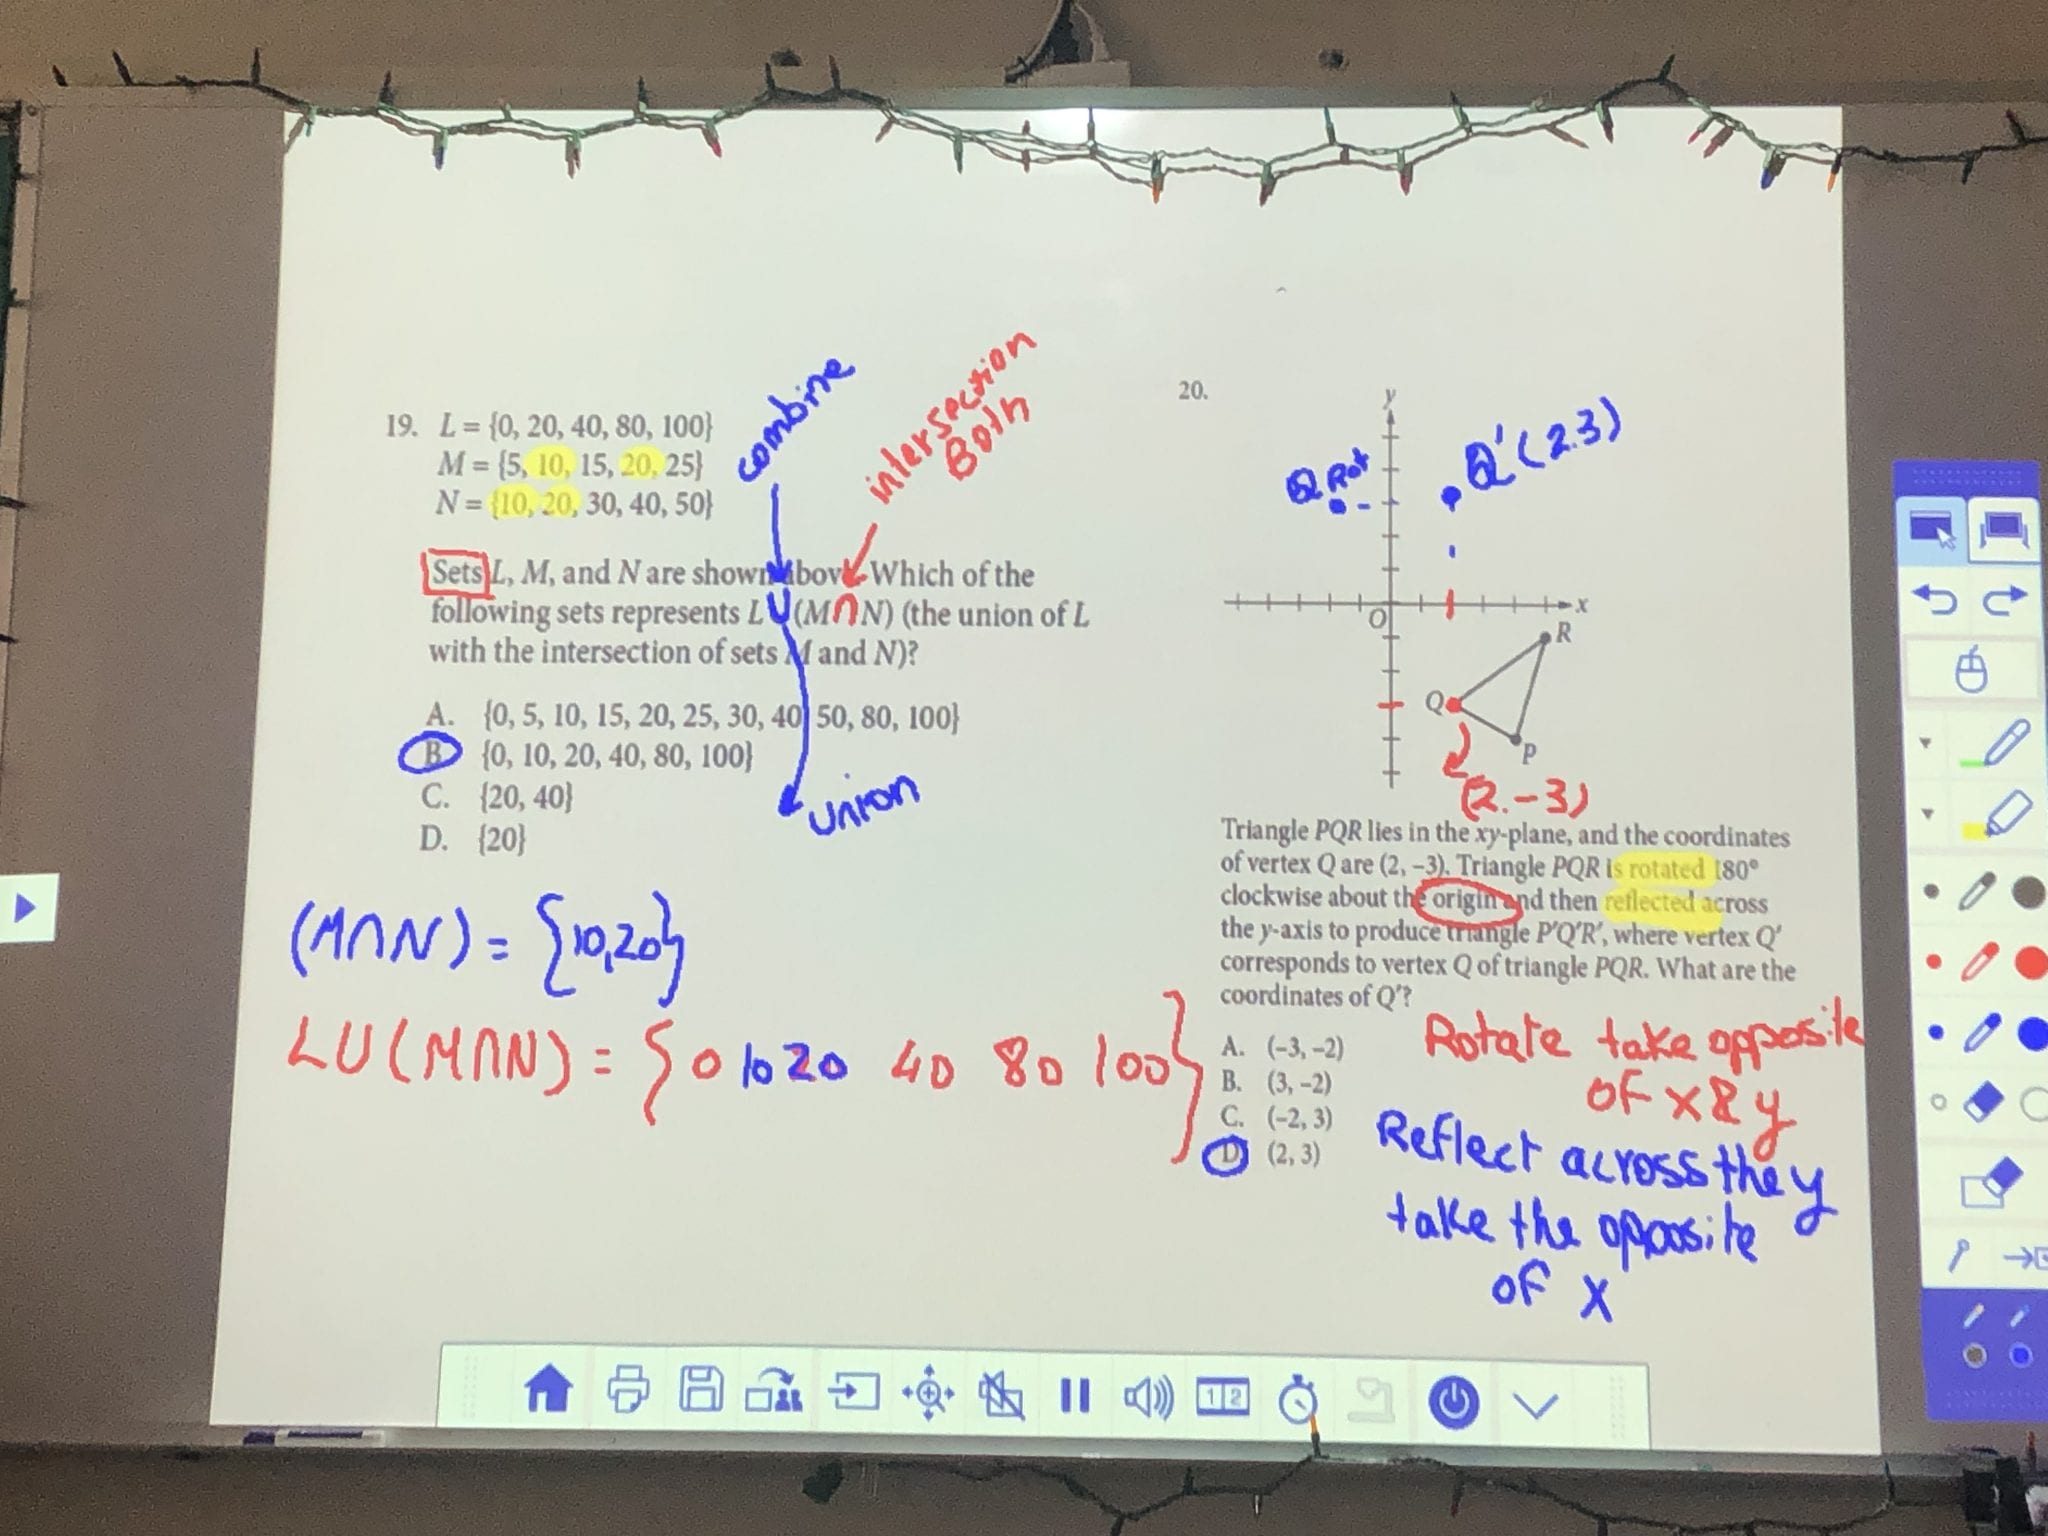 combine
intersection
Both
19. L = {0, 20, 40, 80, 100}
M = {5, 10, 15, 20, 25}
N = {10, 20, 30, 40, 50}
Sets L, M, and N are shown above. Which of the
following sets represents L∪(M∩N) (the union of L
with the intersection of sets M and N)?
A. {0, 5, 10, 15, 20, 25, 30, 40, 50, 80, 100}
B. {0, 10, 20, 40, 80, 100}
C. {20, 40}
D. {20}
union
(M∩N) = {10,20}
LU(M∩N) = {0 10 20 40 80 100}
20.
y
Q Rot
Q'(2.3)
x
O
R
Q
P
(2.-3)
Triangle PQR lies in the xy-plane, and the coordinates
of vertex Q are (2, –3). Triangle PQR is rotated 180°
clockwise about the origin and then reflected across
the y-axis to produce triangle P'Q'R', where vertex Q'
corresponds to vertex Q of triangle PQR. What are the
coordinates of Q'?
A. (–3, –2)
B. (3, –2)
C. (–2, 3)
D. (2, 3)
Rotate take opposite
of x & y
Reflect across the y
take the opposite
of x
1 2